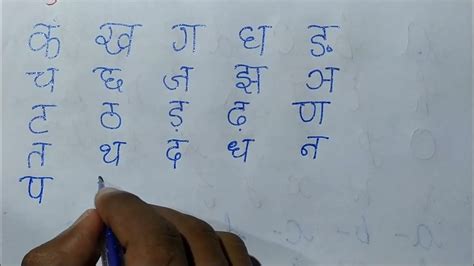 क ख ग घ ङ
च छ ज झ ञ
ट ठ ड़ ढ़ ण
त थ द ध न
प